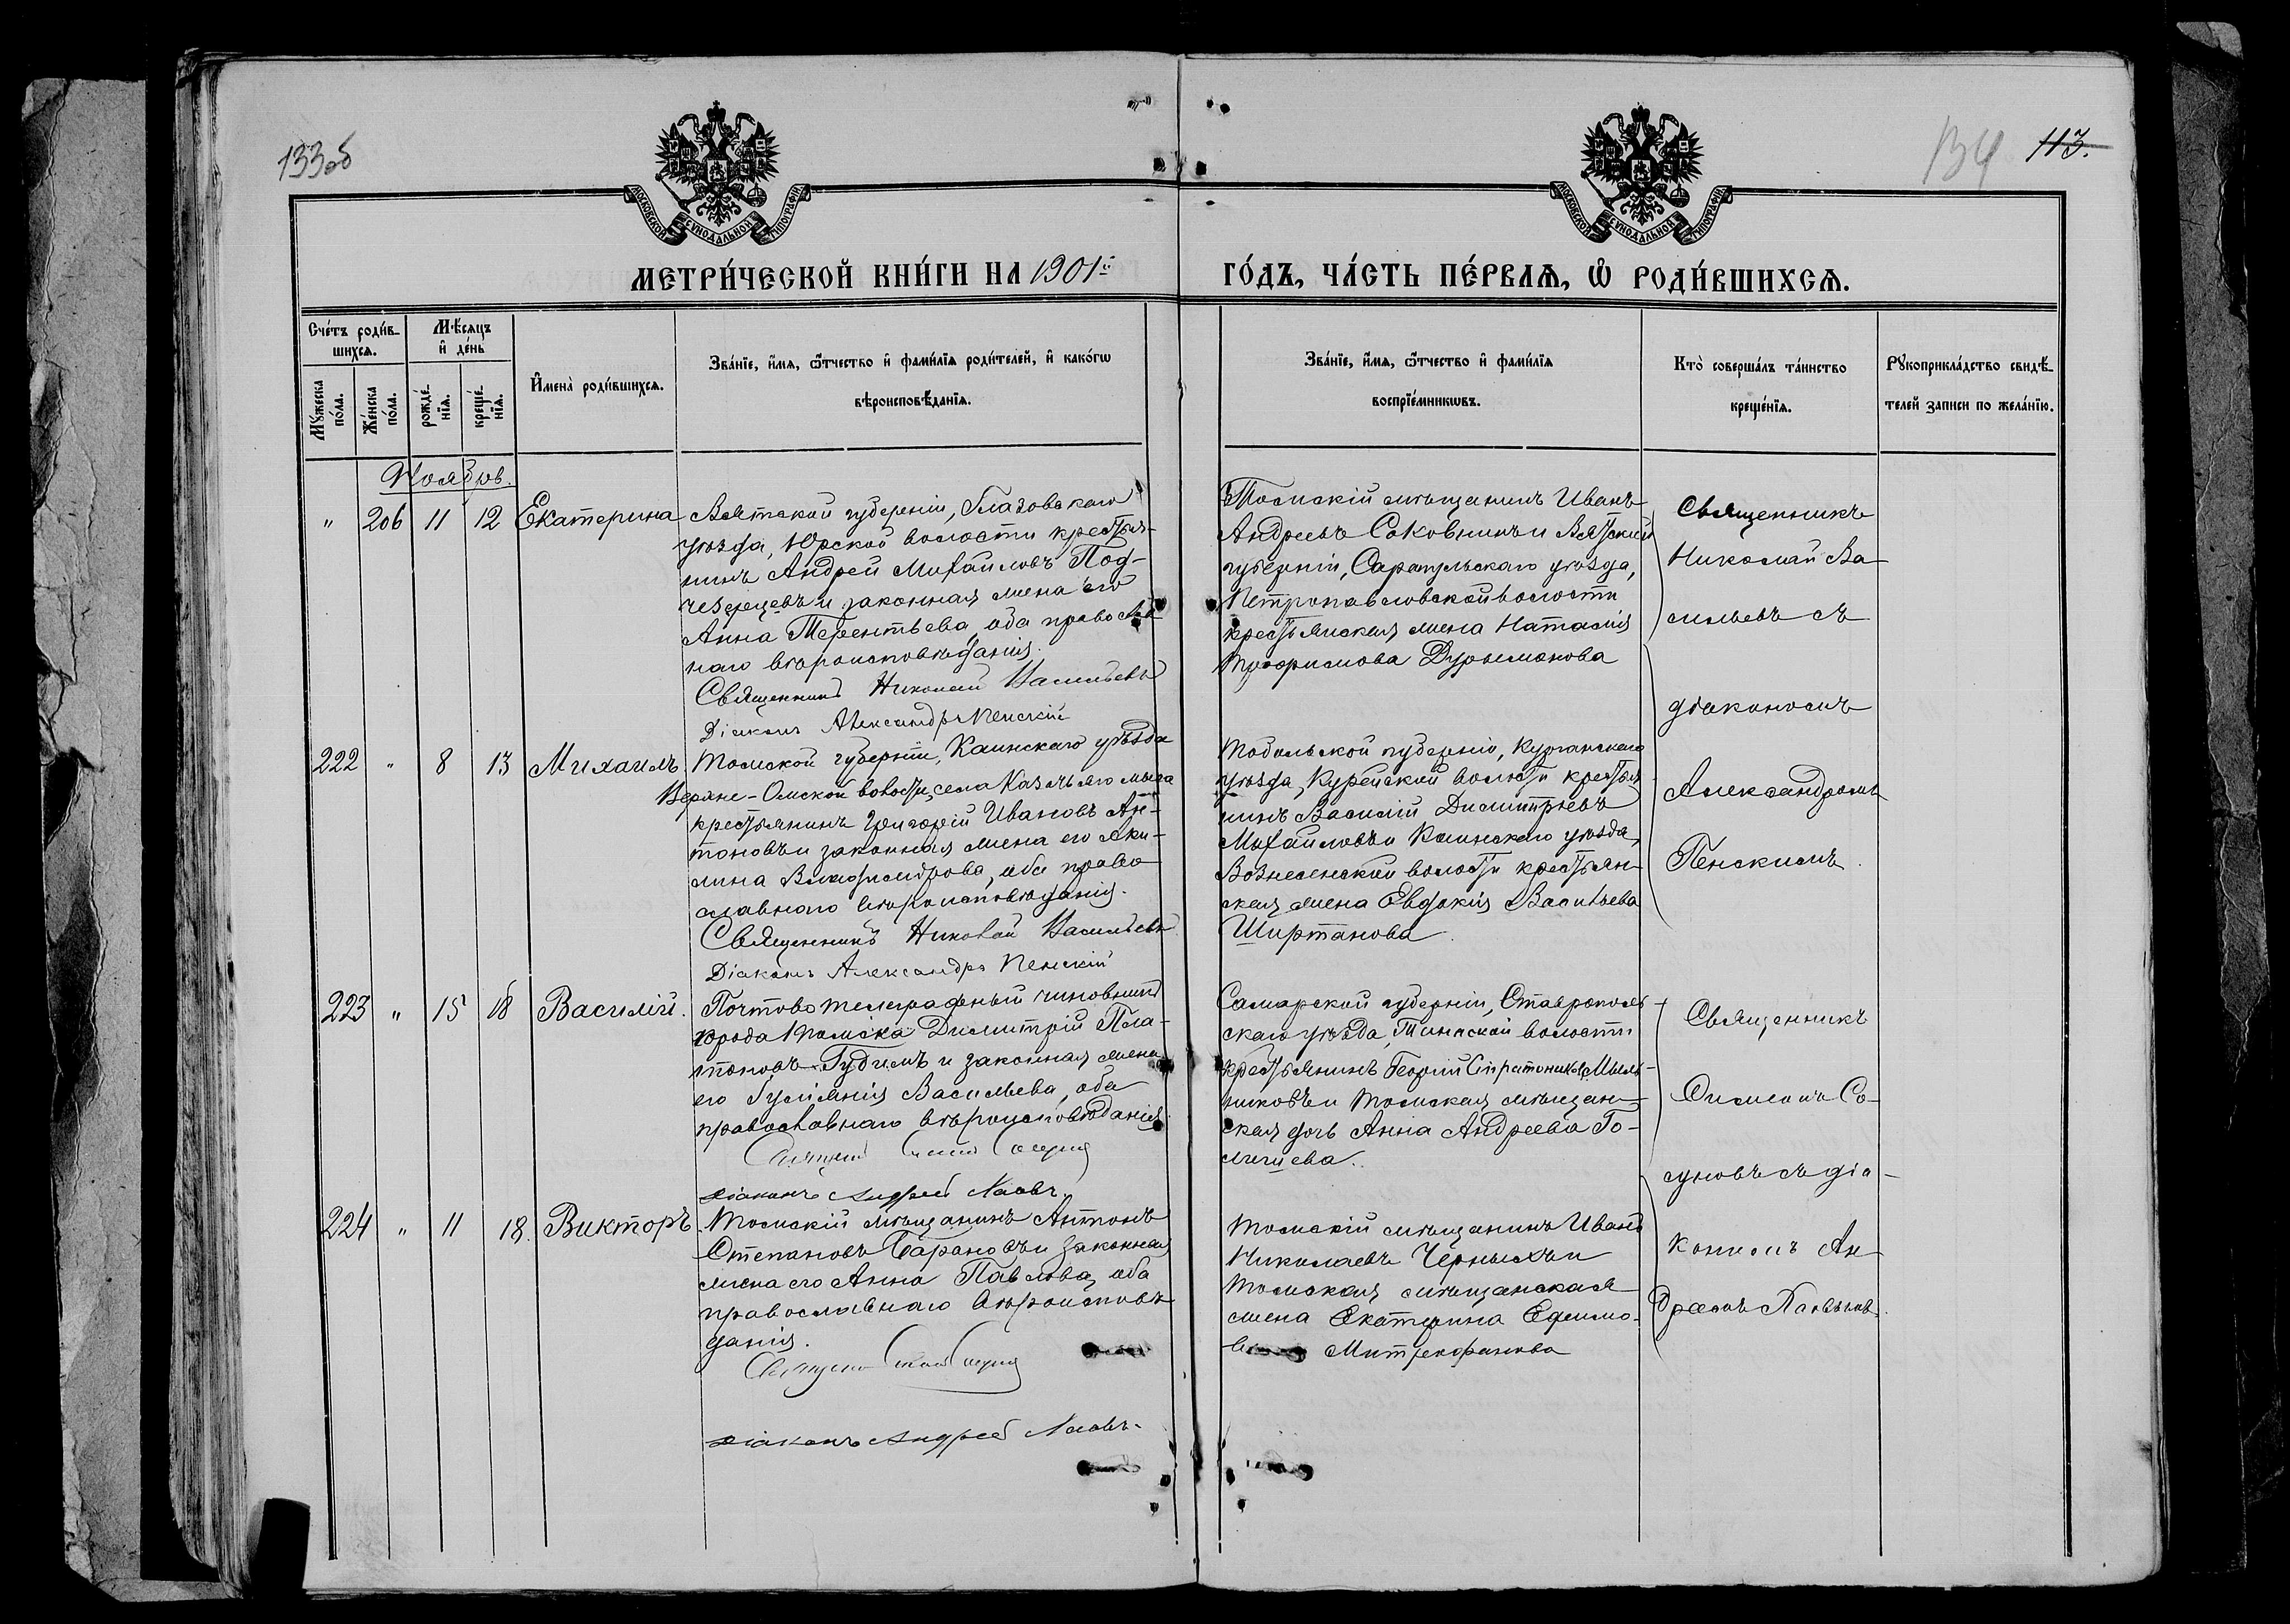 133об
134
113.
МОСКОВСКОЙ СѴНОДАЛЬНОЙ ТИПОГРАФІИ
МОСКОВСКОЙ СѴНОДАЛЬНОЙ ТИПОГРАФІИ
МЕТРИ́ЧЕСКОЙ КНИ́ГИ НА 1901й
ГО́ДЪ, ЧА́СТЬ ПЕ́РВАѦ, Ѡ РОДИ́ВШИХСѦ.
Сче́тъ роди́в-
шихсѧ.
Мꙋ́жеска
по́ла.
Же́нска
по́ла.
Мѣ́сѧцъ
и҆ де́нь
рожде́-
нїѧ.
креще́-
нїѧ.
И҆мена̀ роди́вшихсѧ.
Зва́нїе, и҆́мѧ, ѻ҆́тчество и҆ фами́лїѧ роди́телей, и҆ како́гѡ
вѣроисповѣ́данїѧ.
Зва́нїе, и҆́мѧ, ѻ҆́тчество и҆ фами́лїѧ
воспрїе́мникѡвъ.
Кто̀ соверша́лъ та́инство
креще́нїѧ.
Рꙋкоприкла́дство свидѣ́-
телей записи по жела́нїю.
Ноябрь.
" 206 11 12 Екатерина
Вятской губерніи, Глазовскаго
уѣзда, Юрской волости крестья-
нинъ Андрей Михайловъ Под-
чезерцевъ и законная жена его
Анна Терентьева, оба православ
наго вѣроисповѣданія.
Священникъ Николай Васильевъ
Діаконъ Александръ Пенскій
Томскій мѣщанинъ Иванъ
Андреевъ Соковнинъ и Вятской
губерніи, Сарапульскаго уѣзда,
Петропавловской волости
крестьянская жена Наталія
Трофимова Дурыманова
Священникъ
Николай Ва-
сильевъ съ
діакономъ
Александромъ
Пенскимъ.
222 " 8 13 Михаилъ
Томской губерніи, Каинскаго уѣзда
Верхне-Омской волости, села Казачьяго мыса
крестьянинъ Григорій Ивановъ Ан-
тоновъ и законная жена его Аки-
лина Владимирова, оба право-
славнаго вѣроисповѣданія.
Священникъ Николай Васильевъ
Діаконъ Александръ Пенскій
Тобольской губерніи, Курганскаго
уѣзда, Курейской волости крестья-
нинъ Василій Димитріевъ
Михайловъ и Каинскаго уѣзда,
Вознесенской волости крестьян-
ская жена Евдокія Васильева
Ширтанова.
223 " 15 18 Василій.
Почтово телеграфный чиновникъ
города Томска Димитрій Пла-
тоновъ Гудимъ и законная жена
его Гуліанія Васильева, оба
православнаго вѣроисповѣданія.
Священ
Діаконъ Андрей
Самарской губерніи, Ставрополь-
скаго уѣзда, Тіинской волости
крестьянинъ Георгій Стратониковъ Мыль-
никовъ и Томская мѣщан-
ская дочь Анна Андреева Го-
лищева.
Священникъ
Симеонъ Со-
суновъ съ діа-
кономъ Ан-
дреемъ
224 " 11 18. Викторъ
Томскій мѣщанинъ Антонъ
Степановъ Барановъ и законная
жена его Анна Павлова, оба
православнаго вѣроисповѣ
данія.
Священ
Діаконъ Андрей
Томскій мѣщанинъ Иванъ
Николаевъ Черныхъ и
Томская мѣщанская
жена Екатерина Ефимо-
ва Митрофанова